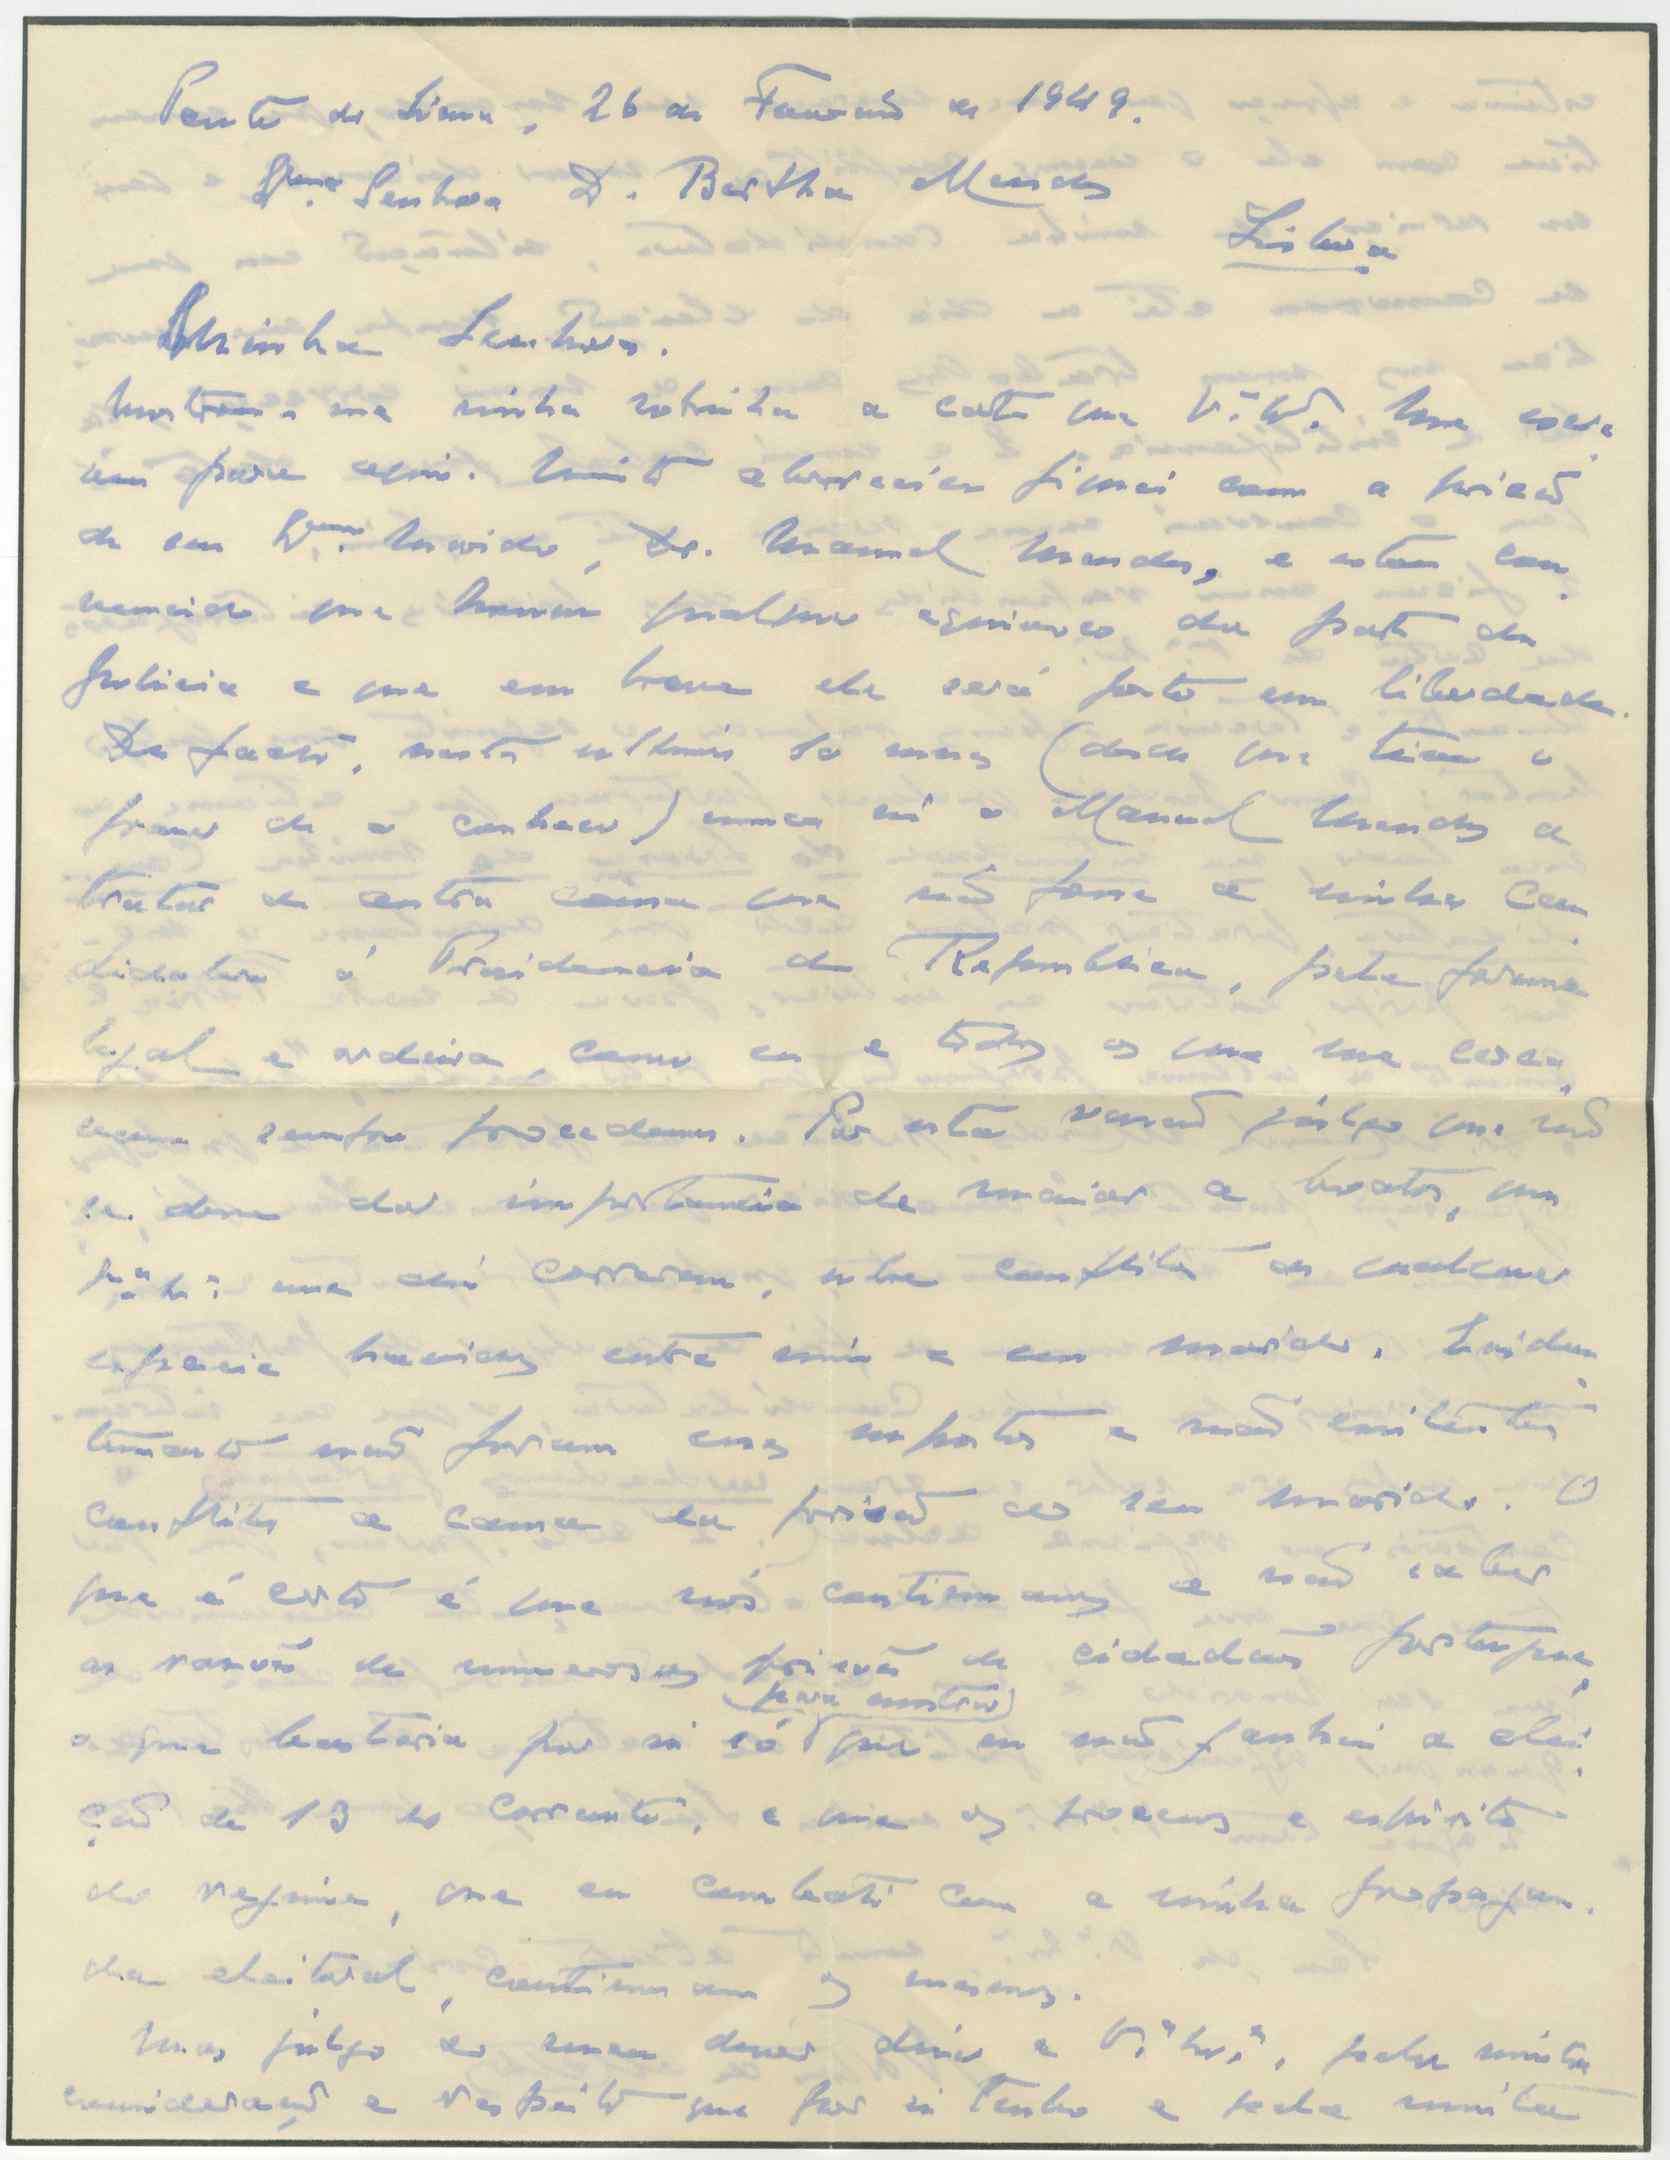 Ponte do Lima, 26 de Fevereiro de 1949.
Exma Senhora D. Bertha Mendes
Lisboa
Minha Senhora.
Mostrou-me minha sobrinha a carta que V.ª Ex.ª lhe escre-
veu para aqui. Muito aborrecido fiquei com a prisão
de seu Exmo. Marido, Dr. Manuel Mendes, e estou con-
vencido que houve qualquer equivoco da parte da
policia e que em breve ele será posto em liberdade.
De facto, nestes ultimos 10 meses (desde que tive o
prazer de o conhecer) nunca vi o Manuel Mendes a
tratar de outra coisa que não fosse a minha Can-
didatura á Presidencia da Republica, pela forma
legal e ordeira, como eu e todos os que me cerca-
ram sempre procedemos. Por esta razão julgo que não
se deve dar importancia de maior a boatos, que
que ahi correram, sobre conflitos de qualquer
especie havidos entre mim e seu marido. Eviden-
temente não foram esses supostos e não existentes
conflitos a causa da prisão do seu marido. O
que é certo é que nós continuamos a não saber
as razões de numerosas prisões de cidadãos portugueses,
(para mostrar)
o que bastaria por si só que eu não ganhei a elei-
ção de 13 do corrente, e que os processos e espirito
do regimen, que eu combati com a minha propagan-
da eleitoral, continuam os mesmos.
Mas julgo do meu dever dizer a V.ª Ex.ª, pela muita
consideração e respeito que por si tenho e pela muita